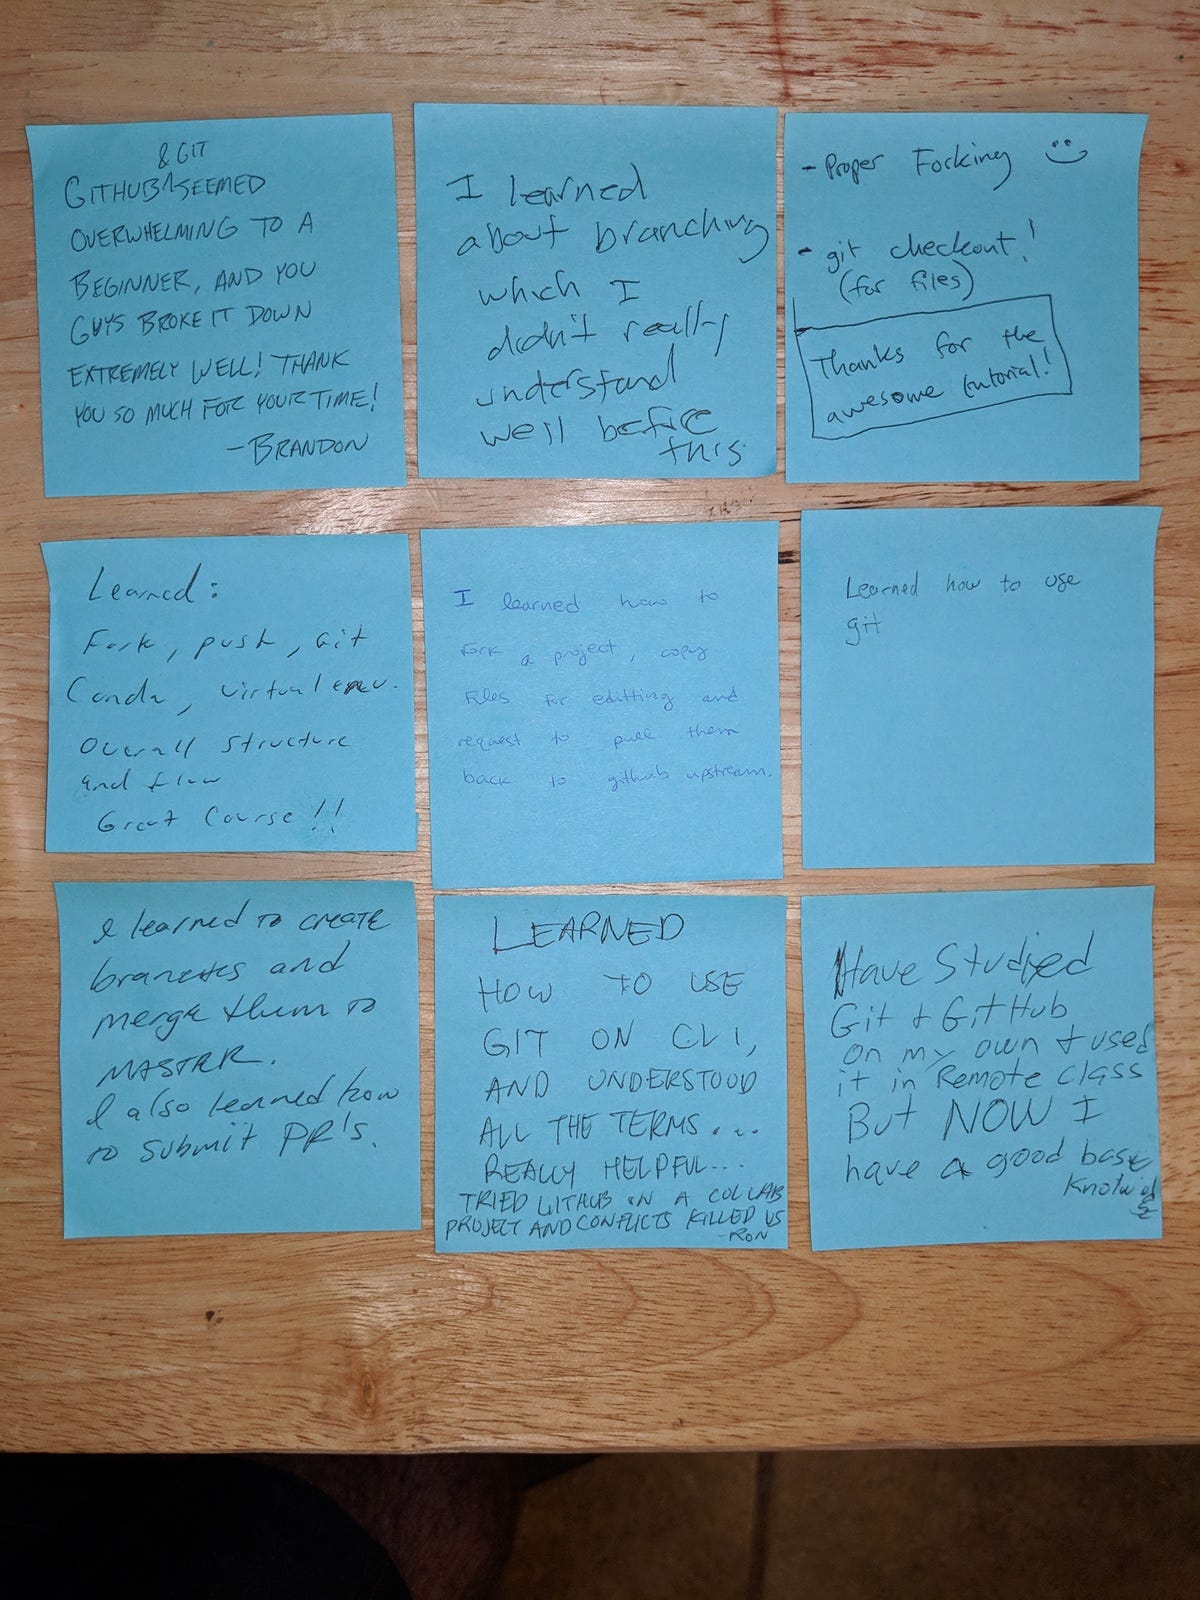 & GIT
GITHUB^SEEMED
OVERWHELMING TO A
BEGINNER, AND YOU
GUYS BROKE IT DOWN
EXTREMELY WELL! THANK
YOU SO MUCH FOR YOUR TIME!
-BRANDON
I learned
about branching
which I
didn't really
understand
well before
this.
- Proper Forking
- git checkout!
(for files)
Thanks for the
awesome tutorial!
Learned:
Fork, push, Git
Conda, virtual env.
Overall structure
and flow
Great Course!!
I learned how to
Fork a project, copy
Files for editting and
request to pull them
back to github upstream.
Learned how to use
git
I learned to create
branches and
merge them to
MASTER.
I also learned how
to submit PR's.
LEARNED
HOW TO USE
GIT ON CLI,
AND UNDERSTOOD
ALL THE TERMS...
REALLY HELPFUL...
TRIED GITHUB ON A COLLAB
PROJECT AND CONFLICTS KILLED US
-RON
Have Studied
Git + GitHub
on my own + used
it in Remote class
But NOW I
have a good base